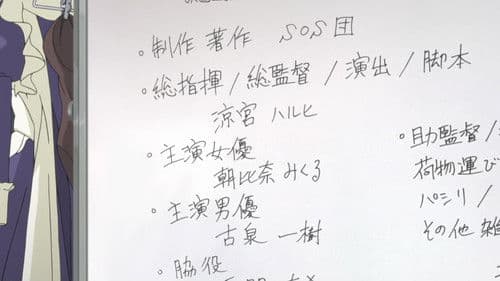 。制作著作 SOS団
。総指揮/総監督/演出/脚本
涼宮 ハルヒ
。主演女優
朝比奈 みくる
。主演男優
古泉 一樹
。脇役
。助監督/
荷物運び
パシリ/
その他 雑